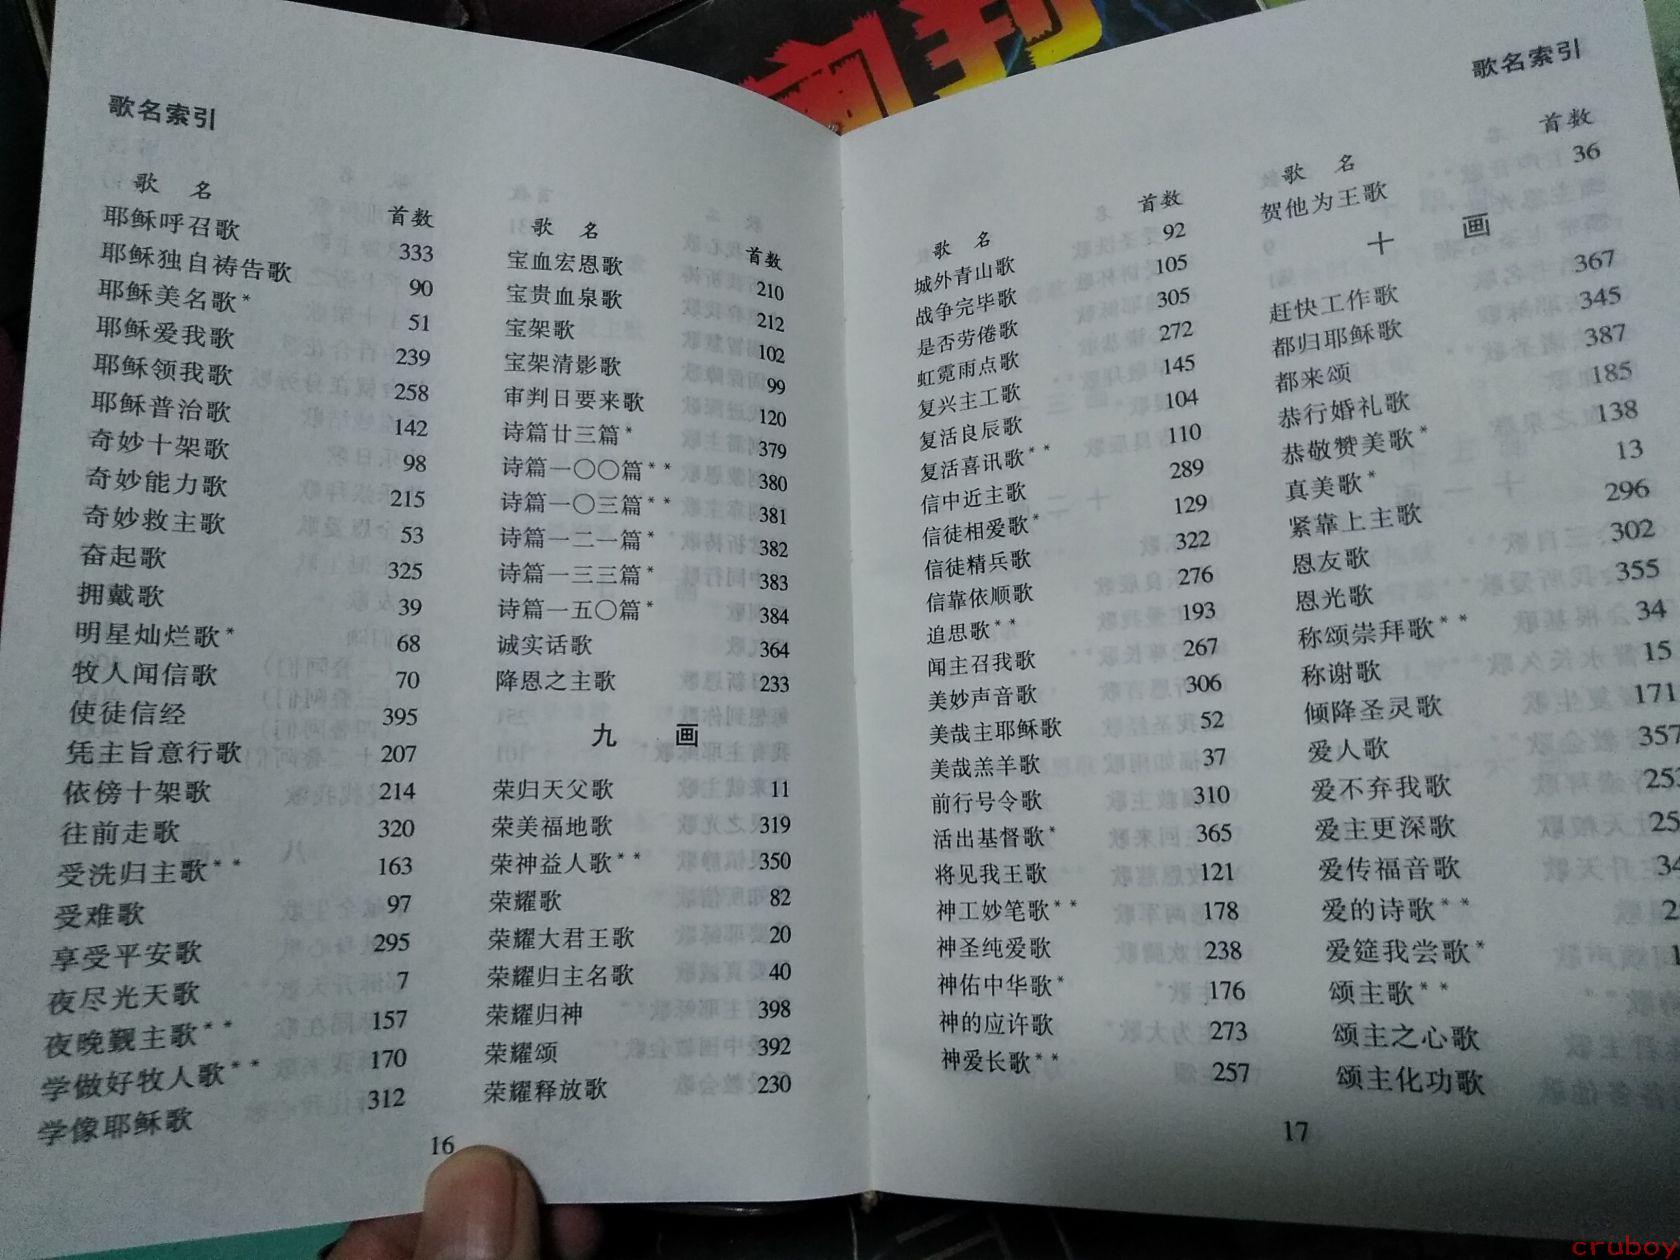 歌名索引
歌 名 首数
耶稣呼召歌 333
耶稣独自祷告歌 90
耶稣美名歌* 51
耶稣爱我歌 239
耶稣领我歌 258
耶稣普治歌 142
奇妙十架歌 98
奇妙能力歌 215
奇妙救主歌 53
奋起歌 325
拥戴歌 39
明星灿烂歌* 68
牧人闻信歌 70
使徒信经 395
凭主旨意行歌 207
依傍十架歌 214
往前走歌 320
受洗归主歌** 163
受难歌 97
享受平安歌 295
夜尽光天歌 7
夜晚觐主歌** 157
学做好牧人歌** 170
学像耶稣歌 312
歌 名 首数
宝血宏恩歌 210
宝贵血泉歌 212
宝架歌 102
宝架清影歌 99
审判日要来歌 120
诗篇廿三篇* 379
诗篇一〇〇篇** 380
诗篇一〇三篇** 381
诗篇一二一篇* 382
诗篇一三三篇* 383
诗篇一五〇篇* 384
诚实话歌 364
降恩之主歌 233
九 画
荣归天父歌 11
荣美福地歌 319
荣神益人歌** 350
荣耀歌 82
荣耀大君王歌 20
荣耀归主名歌 40
荣耀归神 398
荣耀颂 392
荣耀释放歌 230
16
歌名索引
歌 名 首数
城外青山歌 92
战争完毕歌 105
是否劳倦歌 305
虹霓雨点歌 272
复兴主工歌 145
复活良辰歌 104
复活喜讯歌** 110
信中近主歌 289
信徒相爱歌* 129
信徒精兵歌 322
信靠依顺歌 276
追思歌** 193
闻主召我歌 267
美妙声音歌 306
美哉主耶稣歌 52
美哉羔羊歌 37
前行号令歌 310
活出基督歌* 365
将见我王歌 121
神工妙笔歌** 178
神圣纯爱歌 238
神佑中华歌* 176
神的应许歌 273
神爱长歌** 257
歌 名 首数
贺他为王歌 36
十 画
赶快工作歌 367
都归耶稣歌 345
都来颂 387
恭行婚礼歌 185
恭敬赞美歌* 138
真美歌* 13
紧靠上主歌 296
恩友歌 302
恩光歌 355
称颂崇拜歌** 34
称谢歌 15
倾降圣灵歌 171
爱人歌 357
爱不弃我歌 253
爱主更深歌
爱传福音歌
爱的诗歌**
爱筵我尝歌*
颂主歌**
颂主之心歌
颂主化功歌
17
cruboy